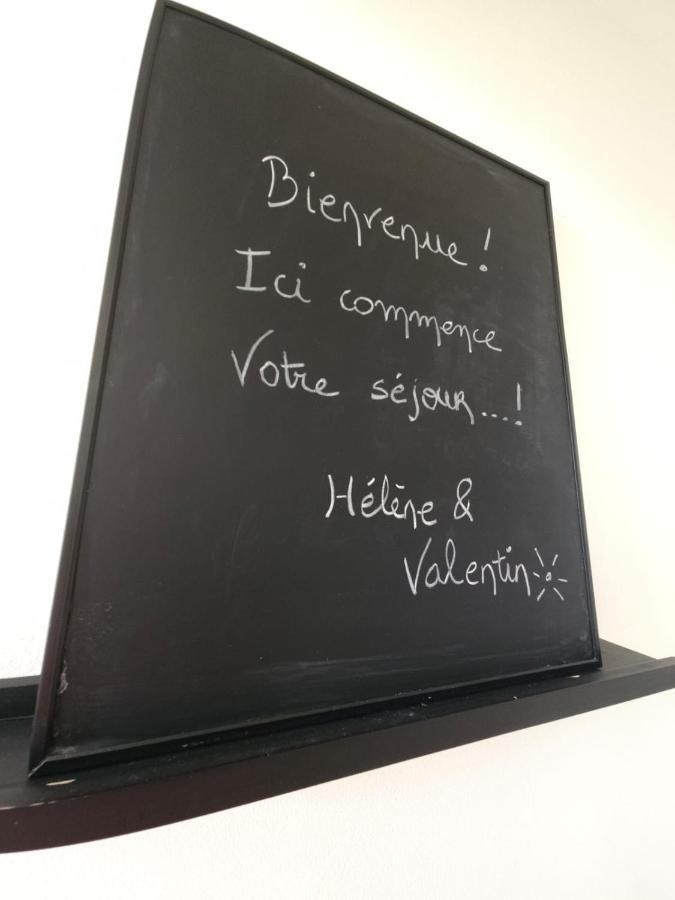 Bienvenue !
Ici commence
Votre séjour....!
Hélène &
Valentin